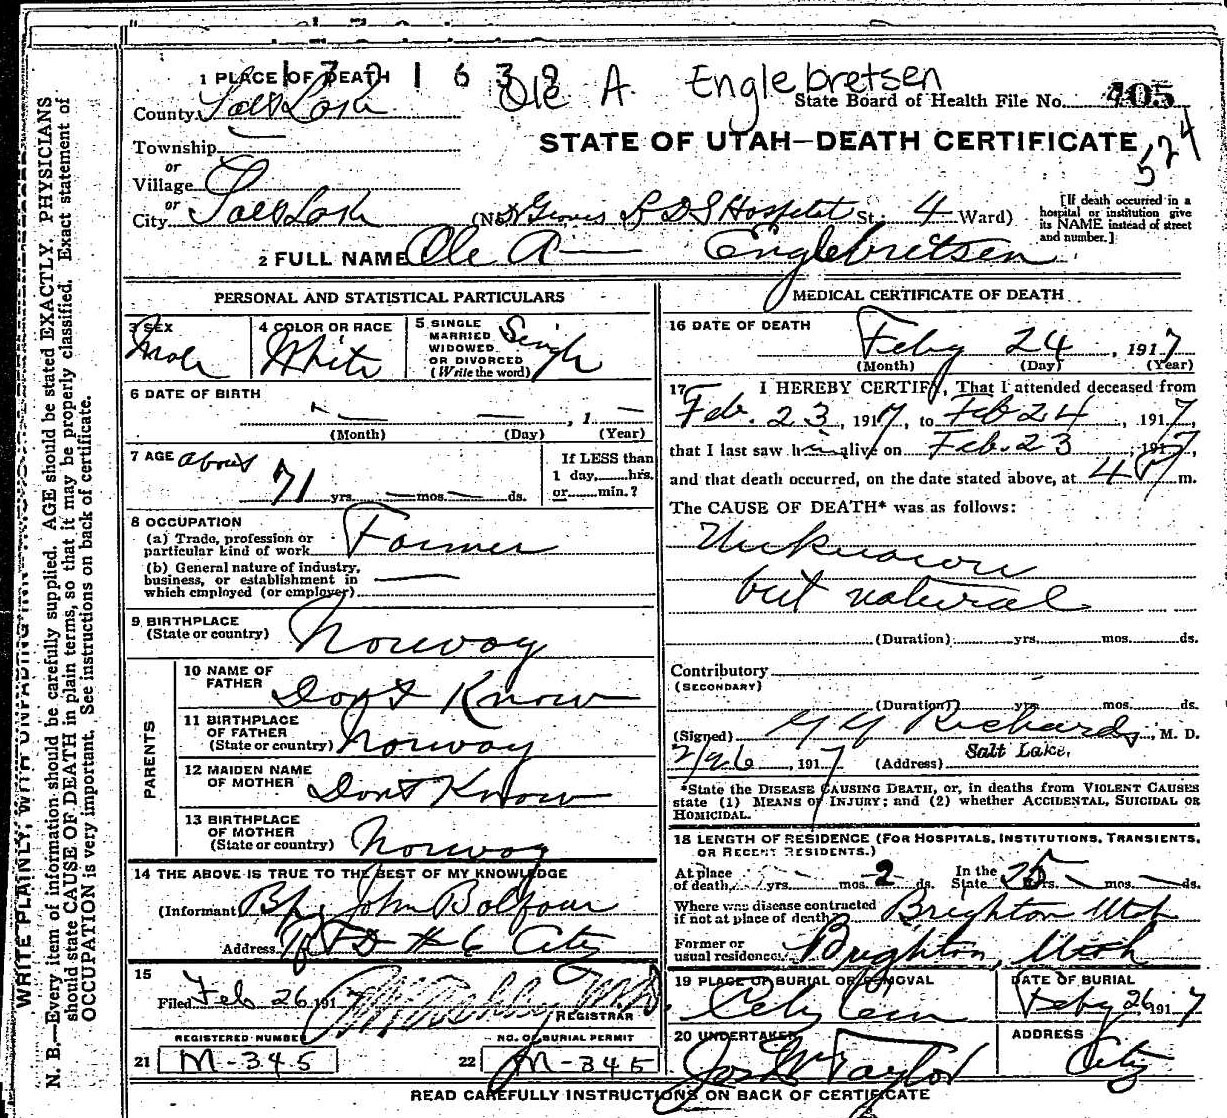 1 PLACE OF DEATH
Ole A. Englebretsen
County Salt Lake
State Board of Health File No. 405
524
STATE OF UTAH—DEATH CERTIFICATE
Township
or
Village
or
City Salt Lake (No. Groves L D S Hospital St.; 4 Ward)
[If death occurred in a
hospital or institution give
its NAME instead of street
and number.]
2 FULL NAME Ole A Englebretsen
PERSONAL AND STATISTICAL PARTICULARS
3 SEX
Male
4 COLOR OR RACE
White
5 SINGLE
MARRIED
WIDOWED
OR DIVORCED
(Write the word)
Single
6 DATE OF BIRTH
— — , 1 —
(Month) (Day) (Year)
7 AGE about
71 yrs. — mos. — ds.
If LESS than
1 day, hrs.
or min.?
8 OCCUPATION
(a) Trade, profession or
particular kind of work Farmer
(b) General nature of industry,
business, or establishment in
which employed (or employer)
9 BIRTHPLACE
(State or country) Norway
PARENTS
10 NAME OF
FATHER Dont Know
11 BIRTHPLACE
OF FATHER
(State or country) Norway
12 MAIDEN NAME
OF MOTHER Dont Know
13 BIRTHPLACE
OF MOTHER
(State or country) Norway
14 THE ABOVE IS TRUE TO THE BEST OF MY KNOWLEDGE
(Informant Bp. John Balfour
Address R F D # 6 City
15
Filed Feb 26 1917
M.D.
REGISTRAR
REGISTERED NUMBER
21 M-345
NO. OF BURIAL PERMIT
22 M-345
MEDICAL CERTIFICATE OF DEATH
16 DATE OF DEATH
Feby 24, 1917
(Month) (Day) (Year)
17 I HEREBY CERTIFY, That I attended deceased from
Feb. 23, 1917, to Feb 24, 1917,
that I last saw him alive on Feb. 23, 1917,
and that death occurred, on the date stated above, at m.
The CAUSE OF DEATH* was as follows:
Unknown
but natural
(Duration) yrs. mos. ds.
Contributory
(SECONDARY)
(Duration) yrs. mos. ds.
(Signed) G G Richards, M. D.
2/26, 1917 (Address) Salt Lake,
*State the DISEASE CAUSING DEATH, or, in deaths from VIOLENT CAUSES
state (1) MEANS OF INJURY; and (2) whether ACCIDENTAL, SUICIDAL OR
HOMICIDAL.
18 LENGTH OF RESIDENCE (FOR HOSPITALS, INSTITUTIONS, TRANSIENTS,
OR RECENT RESIDENTS.)
At place
of death yrs. mos. 2 ds.
In the
State 25 yrs. — mos. — ds.
Where was disease contracted
if not at place of death? Brighton Utah
Former or
usual residence Brighton, Utah
19 PLACE OF BURIAL OR REMOVAL
City Cem
DATE OF BURIAL
Feby 26 1917
20 UNDERTAKER
Jos Wm Taylor
ADDRESS
City
READ CAREFULLY INSTRUCTIONS ON BACK OF CERTIFICATE
WRITE PLAINLY, WITH UNFADING INK
N. B.—Every item of information should be carefully supplied. AGE should be stated EXACTLY. PHYSICIANS
should state CAUSE OF DEATH in plain terms, so that it may be properly classified. Exact statement of
OCCUPATION is very important. See instructions on back of certificate.